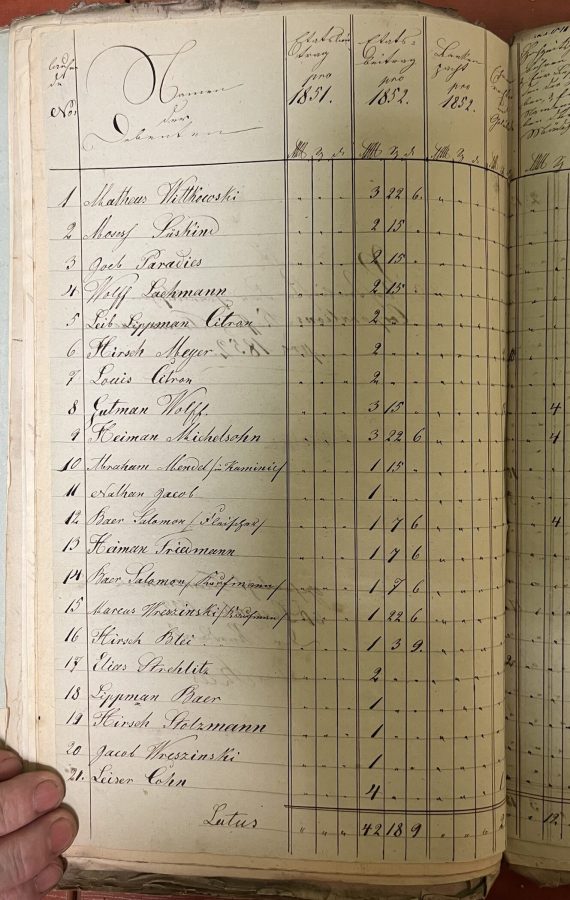 Laufende No:
Namen
der
Debenten
Etats
pro
1851.
Etats-
beitrag
pro
1852.
Banken
pacht
pro
1852.
1 Matheus Wittkowski 3 22 6.
2 Moses Süskind 2 15
3 Joeb Paradies 2 15
4. Wolff Lachmann 2 15
5 Leib Lippman Citron 2
6 Hirsch Meyer 2
7 Louis Citron 2
8 Gutman Wolff. 3 15 4
9 Heiman Michelsohn 3 22 6 4
10 Abraham Mendel 1 15
11 Nathan Jacob 1
12 Baer Salomon /Fleischer/ 1 7 6 4
13 Heiman Friedmann 1 7 6
14 Baer Salomon /Kaufmann/ 1 7 6
15 Marcus Wreszinski /Kaufmann/ 1 22 6
16 Hirsch Blei 1 3 9.
17 Elias Strehlitz 2
18 Lippman Baer 1
19 Hirsch Stolzmann 1
20 Jacob Wreszinski 1
21. Leiser Cohn 4
Latus 42 18 9 12